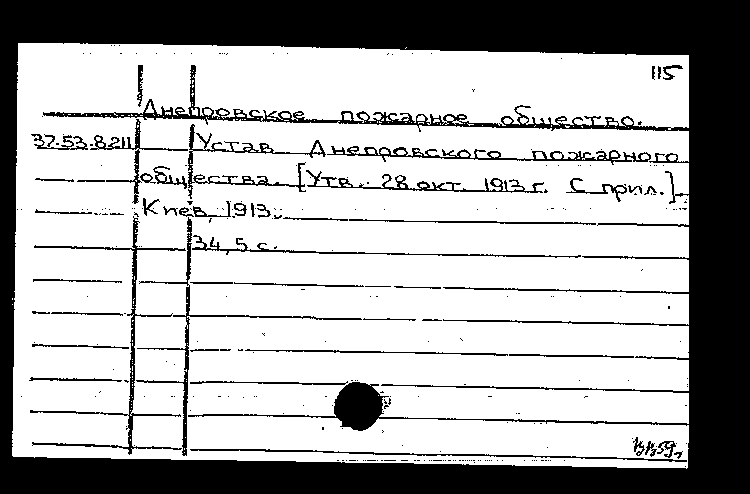 115
Днепровское пожарное общество.
37.53.8.211 Устав Днепровского пожарного
общества. [Утв. 28 окт. 1913 г. С прил.].
Киев, 1913.
34, 5 с.